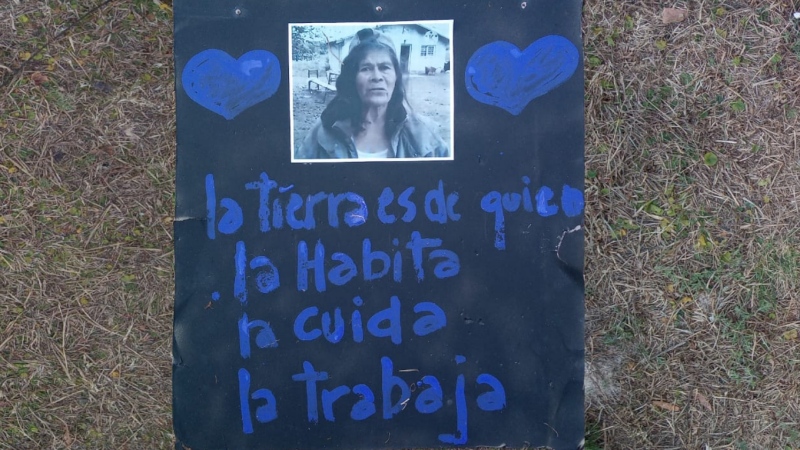 la tierra es de quien
la Habita
la cuida
la trabaja